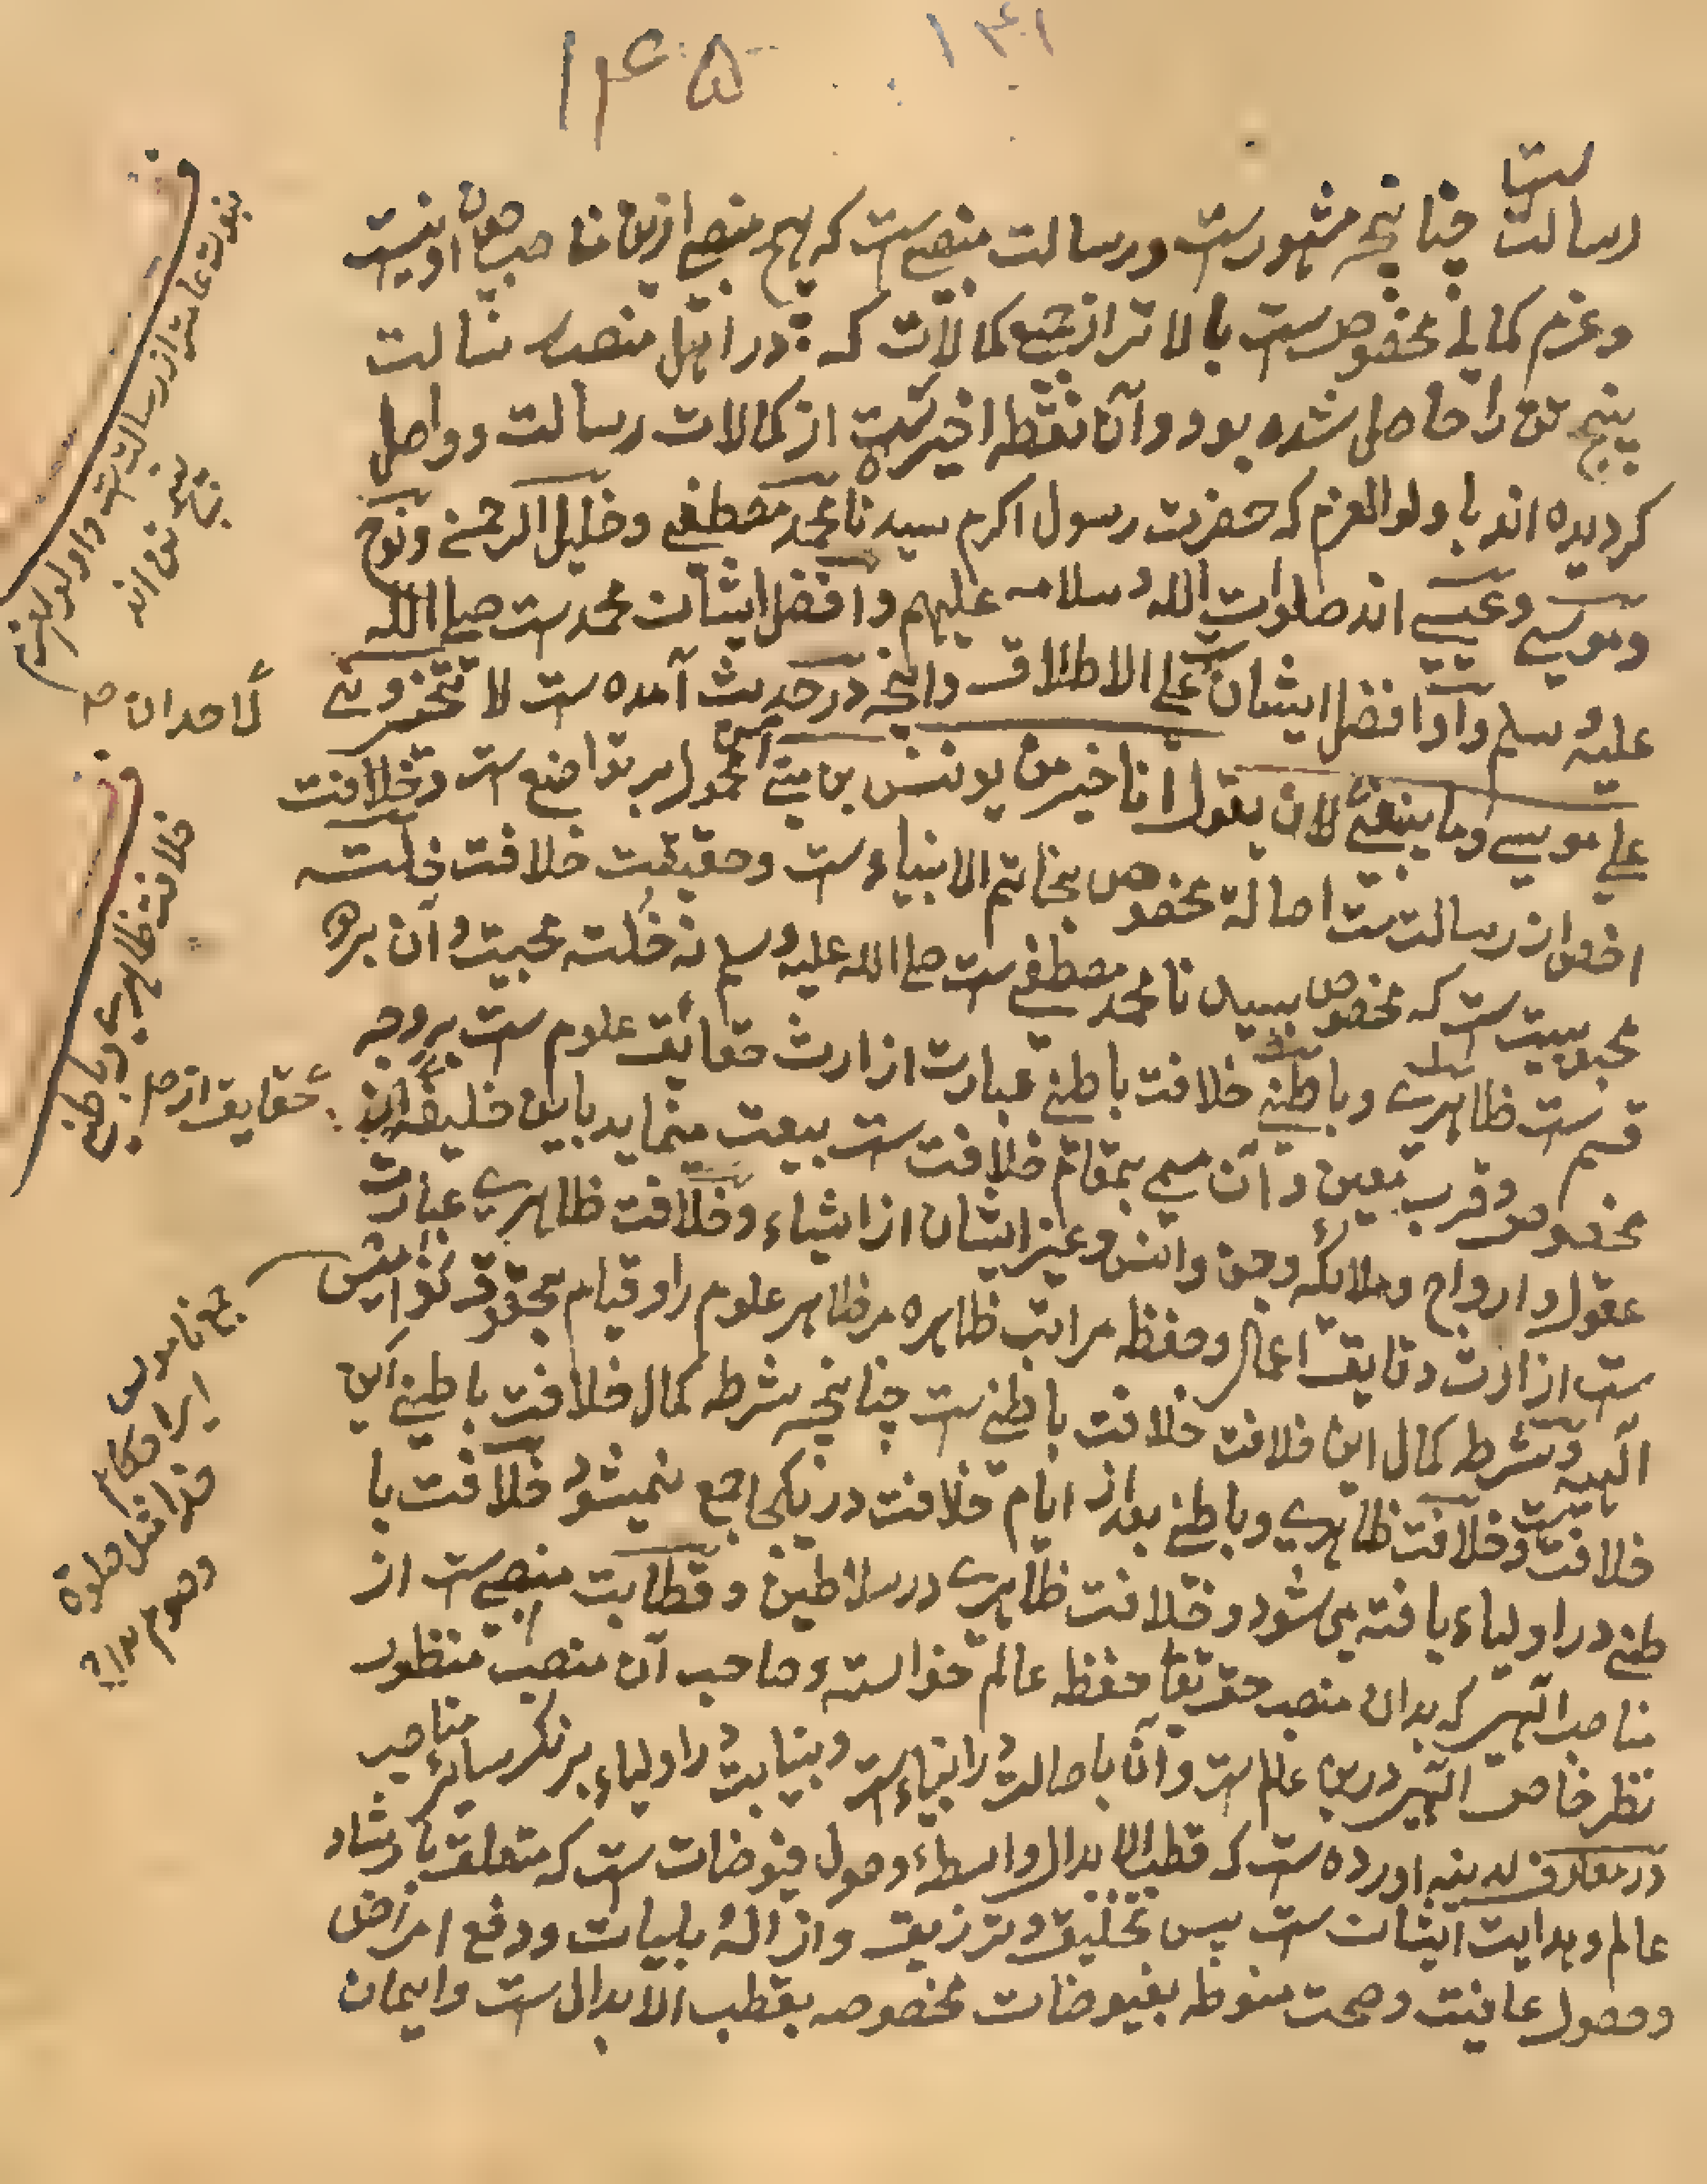 ۱۴۵
۱۴۱
رسالت چنانچه مشهورست ورسالت منصبی ست که هیچ منصبی ازین مناصب اونیست
وعزم کمالی مخصوص ست بالاتر از جمیع کمالات که در اهل منصب رسالت
پنج تن را حاصل شده بود وآن نقطه اخیرست از کمالات رسالت وواصل
کردیده اند باولوالعزم که حضرت رسول اکرم سیدنا محمد مصطفی وخلیل الرحمن ونوح
وموسی وعیسی اند صلوات الله وسلامه علیهم وافضل ایشان محمدست صلی الله
علیه وسلم واو افضل ایشان علی الاطلاق وانچه در حدیث آمده ست لا تخیرونی
علی موسی وما ینبغی لاحد ان یقول انا خیر من یونس بن متی محمول بر تواضع ست وخلافت
اخص از رسالت ست اصالة مخصوص بخاتم الانبیاء ست وحقیقت خلافت خلت
محبوبیت ست که مخصوص بسیدنا محمد مصطفی ست صلی الله علیه وسلم نه خلت محبیت وآن بردو
قسم ست ظاهری وباطنی خلافت باطنی عبارت از ارث حقائق علوم ست بر وجه
مخصوص وقرب معین وآن مسمی بمقام خلافت ست بیعت مینماید باین خلیفه
عقول وارواح وملائکه وجن وانس وغیر ایشان از اشیاء وخلافت ظاهری عبارت
ست از ارث دقایق اعمال وحفظ مراتب ظاهره مر ظاهر علوم را وقیام بحقوق نوامیس
الهیه وشرط کمال این خلافت خلافت باطنی ست چنانچه شرط کمال خلافت باطنی این
خلافت ست وخلافت ظاهری وباطنی بعد از ایام خلافت در یکجا جمع نمیشود خلافت با
طنی در اولیاء یافته می شود وخلافت ظاهری در سلاطین وقطابت منصبی ست از
مناصب الهیه که بدان منصب حق تعا حفظ عالم خواسته وصاحب آن منصب منظور
نظر خاص الهی درین عالم ست وآن باصالت در انبیاء ست وبنیابت در اولیاء بر نکر سائر مناصب
در معارف لدنیه اورده ست که قطب الابدال واسطهٔ وصول فیوضات ست که متعلق بارشاد
عالم وهدایت ایشان ست پس تخلیق وترزیق وازالهٔ بلیات ودفع امراض
وحصول عافیت وصحت منوط بفیوضات مخصوصه بقطب الابدال ست وایمان
نبوت عامتر از رسالت ست واولوالعزم
پنج تن اند
لاحد ان صح
خلافت ظاهری وباطنی
حقایق از صح
جمع ناموس